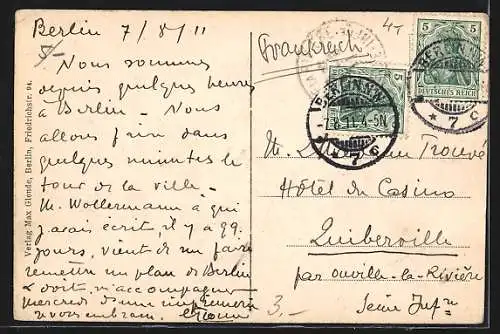 Berlin 7/8/11
Nous sommes
depuis quelques heures
à Berlin - Nous
allons faire dans
quelques minutes le
tour de la ville -
M. Wollermann à qui
j'avais écrit il y a
jours, vient de me faire
remettre un plan de Berlin
& doit m'accompagner
mercredi d'une imprimerie
Verlag Max Glonde, Berlin, Friedrichstr. 94.
4
Frankreich
5 5
DEUTSCHES REICH
BERLIN N.W.
* 7 c
5
BERLIN N.W.
8.11.4-5N
* 7 c
M. Trouvé
Hôtel du Casino
Quiberville
par Ouville-la-Rivière
Seine Infre
3.-